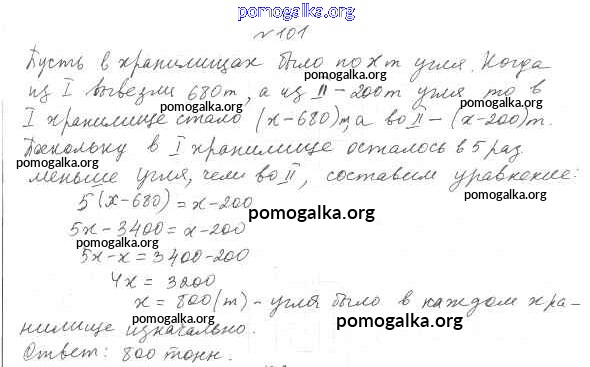 pomogalka.org
№ 101
Пусть в хранилищах было по x т угля. Когда
pomogalka.org
из I вывезли 680т, а из II – 200т угля то в
pomogalka.org
I хранилище стало (x-680)т, а во II – (x-200)т.
Поскольку в I хранилище осталось в 5 раз
pomogalka.org
pomogalka.org
меньше угля, чем во II, составим уравнение:
5(x-680) = x-200
pomogalka.org
5x - 3400 = x - 200
pomogalka.org
pomogalka.org
5x - x = 3400-200
4x = 3200
pomogalka.org
pomogalka.org
x = 800(т) – угля было в каждом хра-
нилище изначально.
pomogalka.org
pomogalka.org
Ответ: 800 тонн.
pomogalka.org